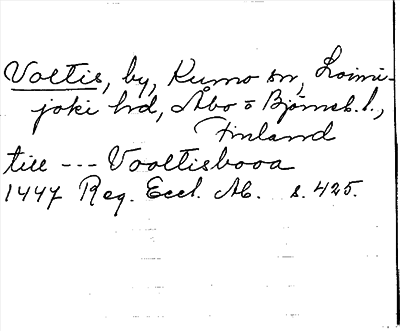 Voltis, by, Kumo sn, Loimi-
joki hd, Åbo o Björneb. l.,
Finland
till --- Vooltisbooa
1447 Reg. Eccl. Ab. s. 425.